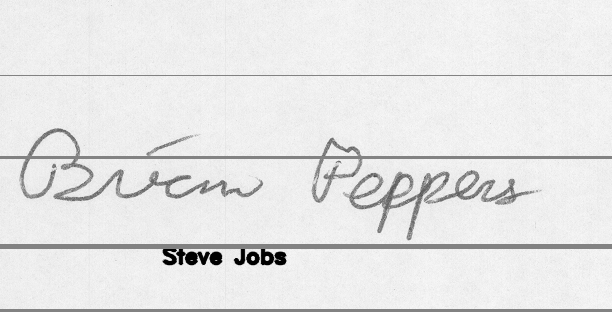 Brian Peppers
Steve Jobs